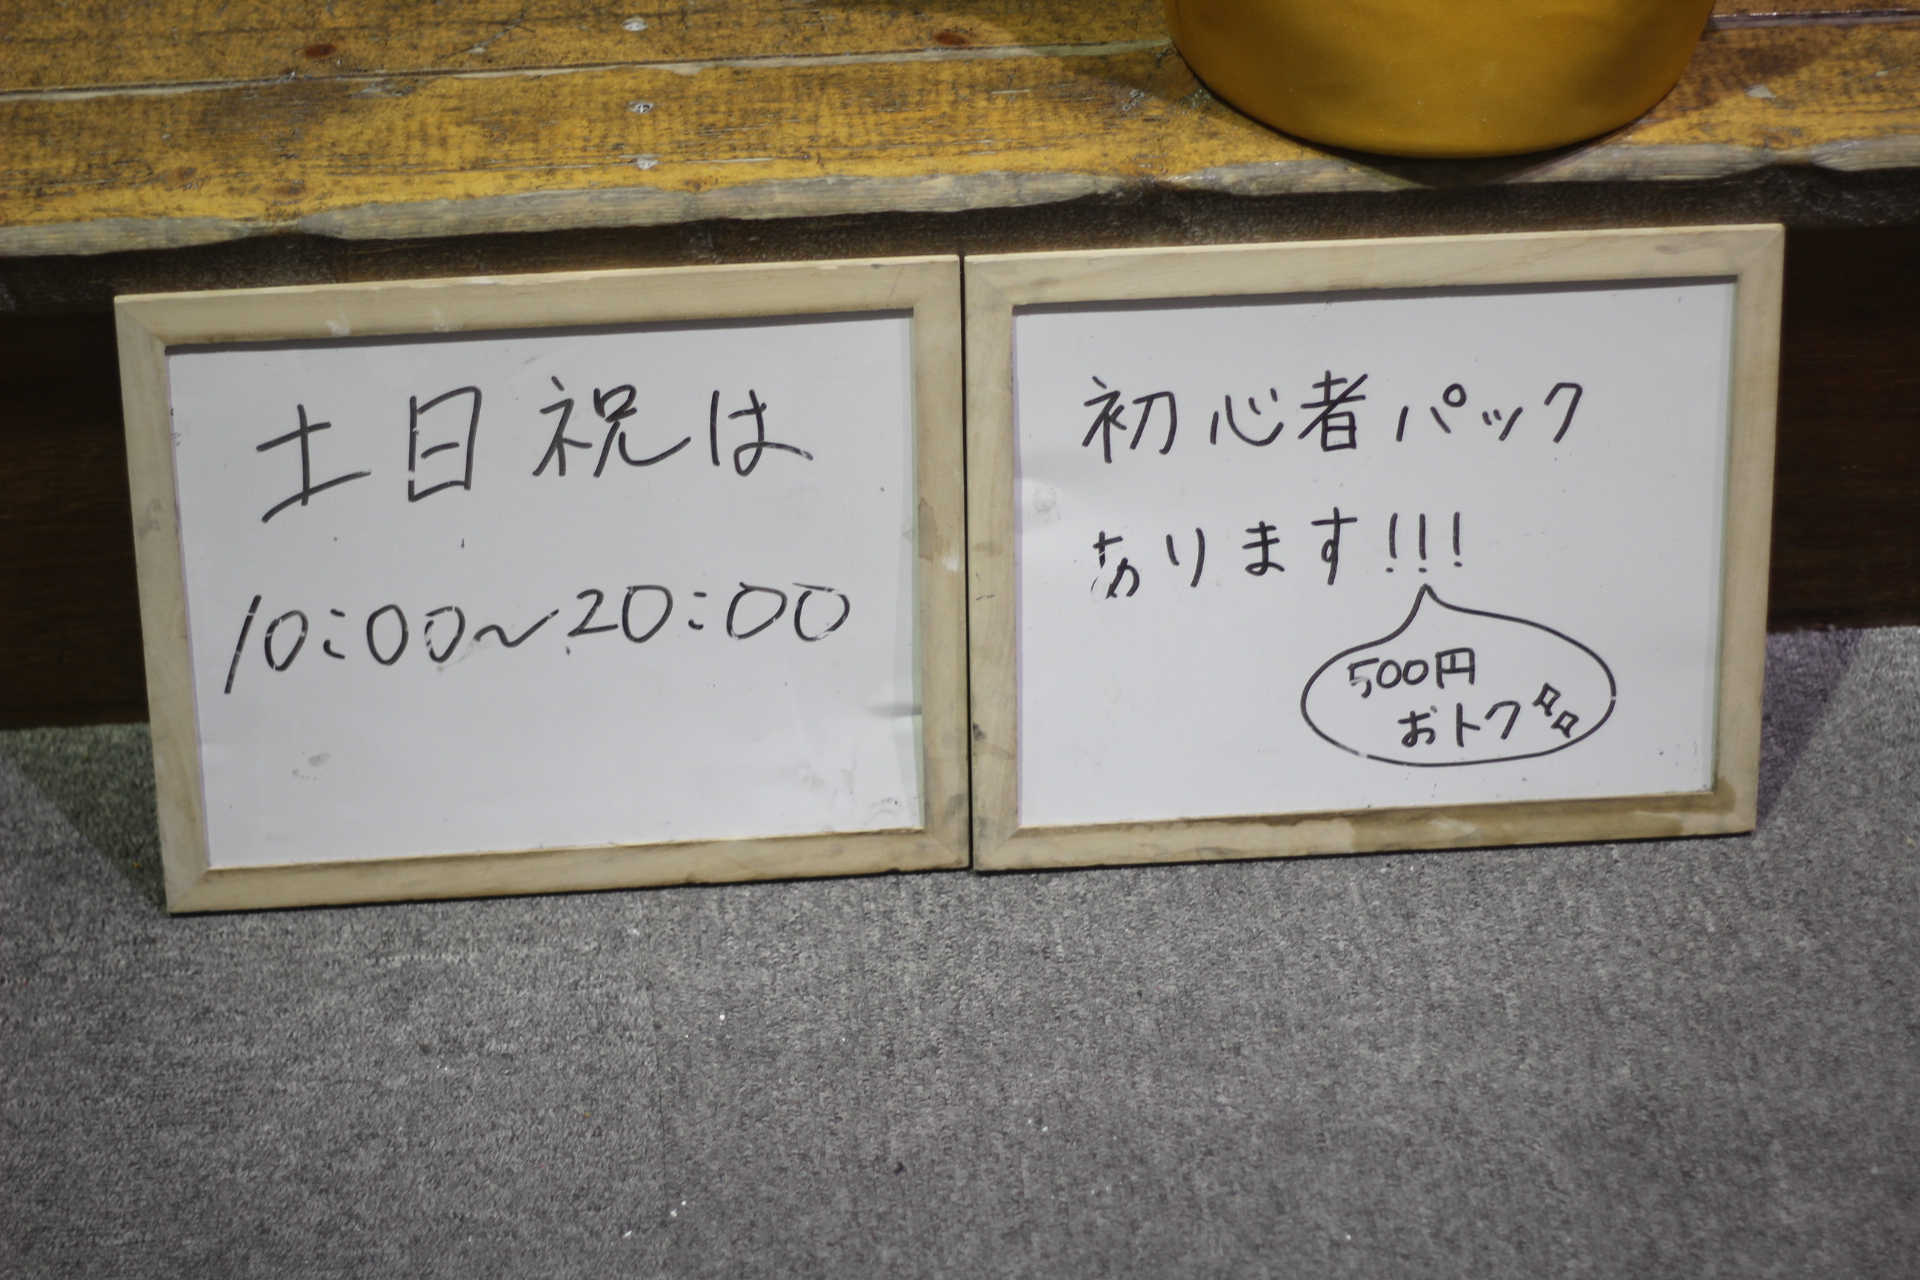 土日祝は
10:00〜20:00
初心者パック
あります!!!
500円
おトク